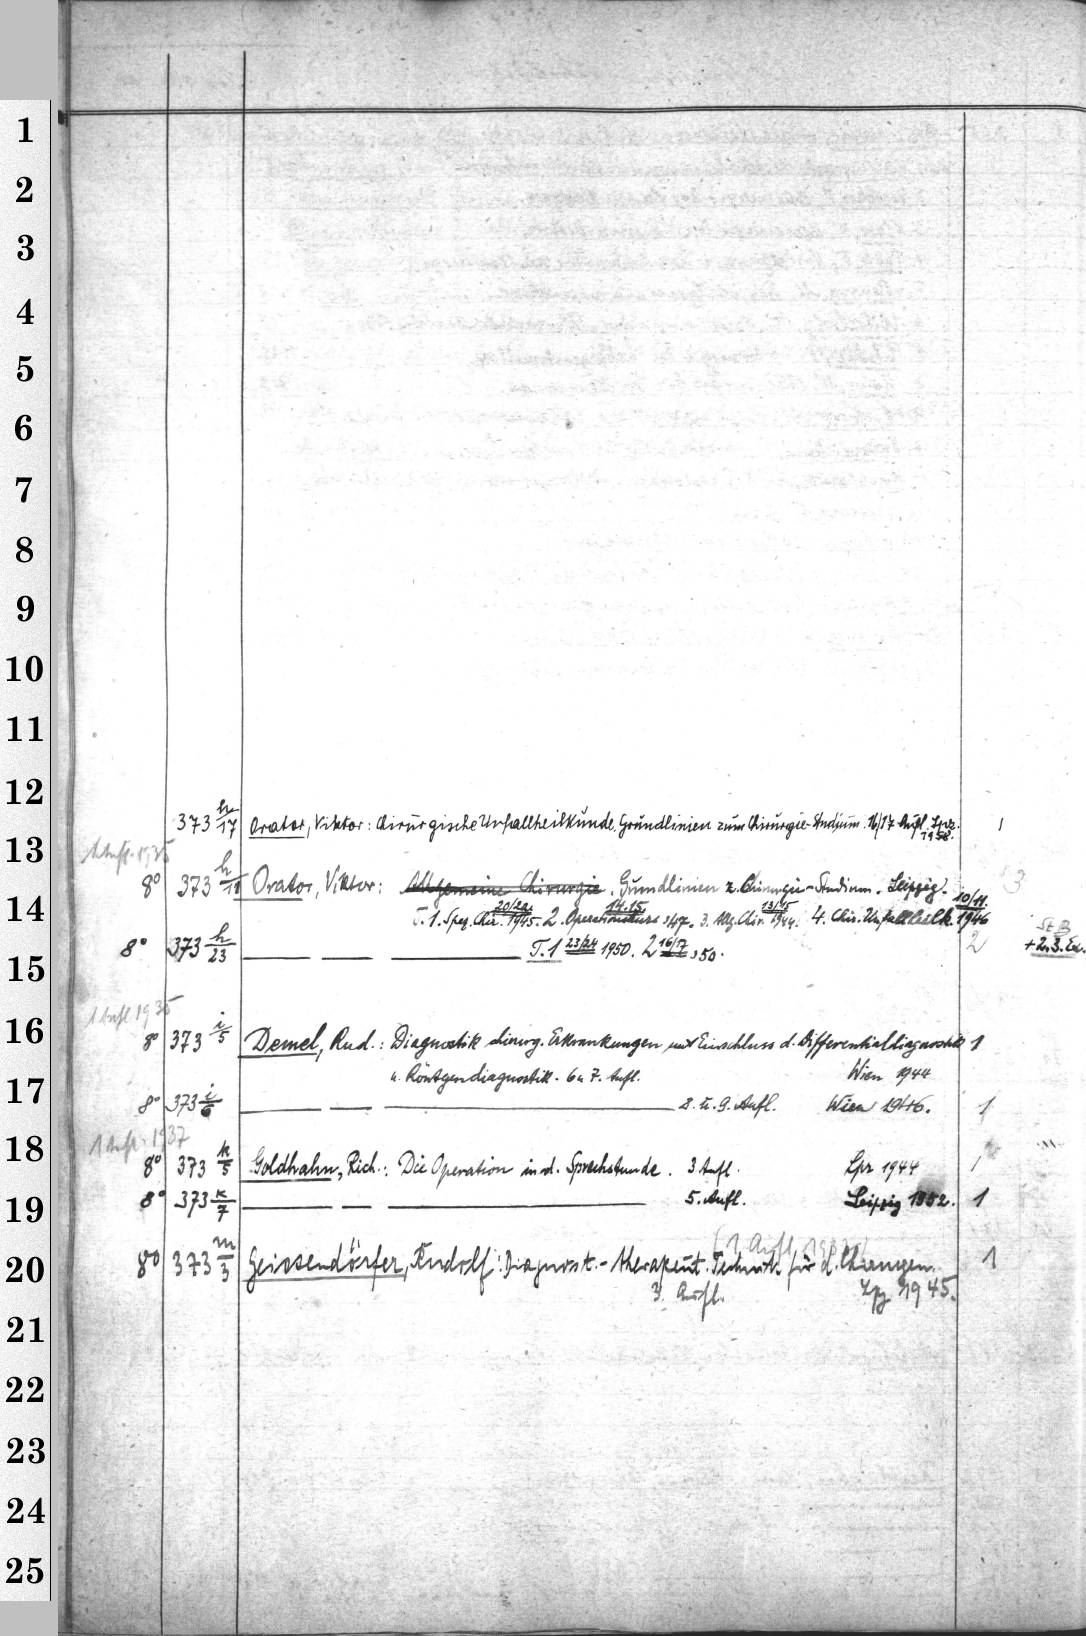 1
2
3
4
5
6
7
8
9
10
11
12
373 h/17 Orator, Viktor: Chirurgische Unfallheilkunde, Grundlinien zum Chirurgie-Studium. 16/17 Aufl. Lpz. 1958. 1
13
1 Aufl. 1935
8° 373 h/19 Orator, Viktor: Allgemeine Chirurgie. Grundlinien z. Chirurgie-Studium. Leipzig. 3
14
T. 1. Spez. Chir. 20/22. 1945. 2. Operationskurs 14.15. 1947. 3. Allg. Chir. 13/15 1944. 4. Chir. Unfallheilk. 10/11. 1946
8° 373 h/23 — — — T. 1 23/24 1950. 2 16/17 1950. 2 St B + 2.3. Ex.
15
1 Aufl 1935
16
8° 373 i/5 Demel, Rud.: Diagnostik chirurg. Erkrankungen mit Einschluss d. Differentialdiagnostik 1
u. Röntgendiagnostik. 6 u 7. Aufl. Wien 1944
17
8° 373 i/6 — — — 8. u. 9. Aufl. Wien 1946. 1
1 Aufl. 1937
18
8° 373 k/5 Goldhahn, Rich.: Die Operation in d. Sprechstunde. 3 Aufl. Lpz 1944 1
8° 373 k/7 — — — 5. Aufl. Leipzig 1952. 1
19
(1 Aufl. 1937)
20
8° 373 m/3 Geissendörfer, Rudolf: Diagnost.-therapeut. Technik für d. Chirurgen. 1
3. Aufl. Lpz 1945.
21
22
23
24
25